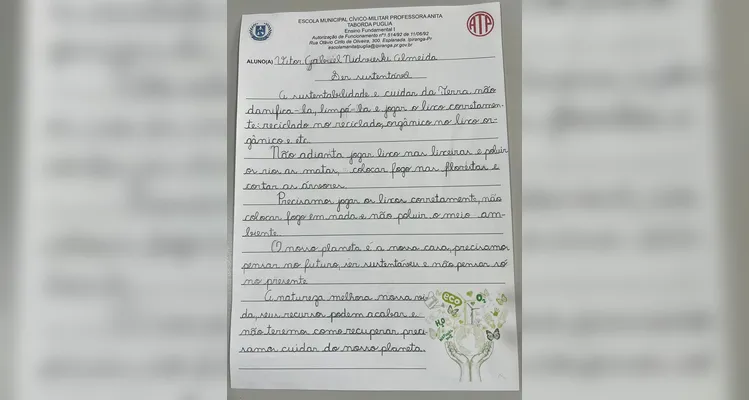 ESCOLA MUNICIPAL CÍVICO-MILITAR PROFESSORA ANITA
TABORDA PUGLIA
Ensino Fundamental I
Autorização de Funcionamento nº1.514/92 de 11/06/92
Rua Otávio Cirilo de Oliveira, 300, Esplanada. Ipiranga-Pr
escolamentalpuglia@ipiranga.pr.gov.br
ATP
ALUNO(A) Vitor Gabriel Almeida
Ser sustentável
A sustentabilidade e cuidar da Terra não
danifica-la, limpá-la e jogar o lixo corretamen-
te: reciclado no reciclado, orgânico no lixo or-
gânico e etc.
Não adianta jogar lixo nas lixeiras e poluir
os rios as matas, colocar fogo nas florestas e
cortar as árvores.
Precisamos jogar os lixos corretamente, não
colocar fogo em nada e não poluir o meio am-
biente.
O nosso planeta é a nossa casa, precisamos
pensar no futuro, ser sustentáveis e não pensar só
no presente
A natureza melhora nossa vi-
da, seus recursos podem acabar e
não teremos como recuperar, preci-
samos cuidar do nosso planeta.
ECO
O₂
H₂O